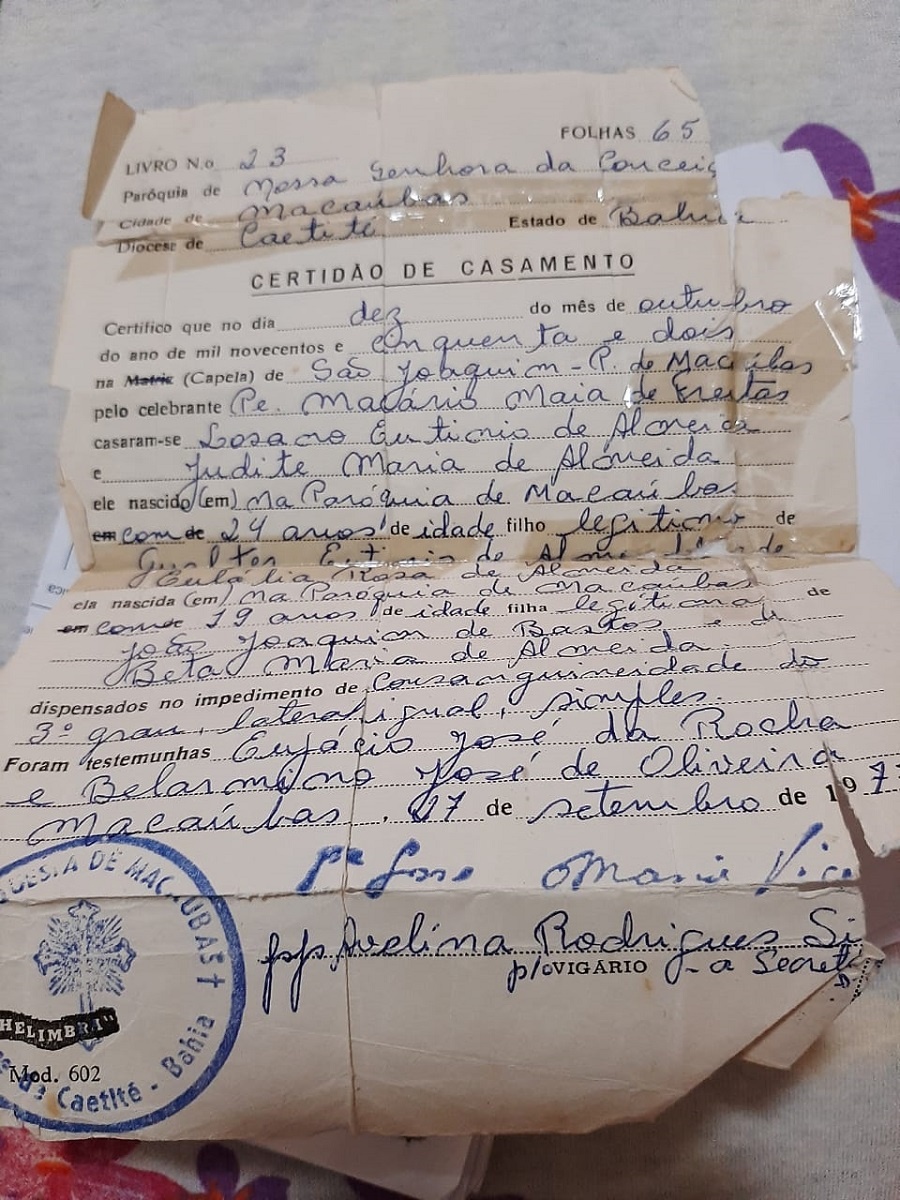 FOLHAS 65
LIVRO N.o 23
Paróquia de Nossa Senhora da Conceiç
Cidade de Macaúbas
Diocese de Caetité Estado de Bahia
CERTIDÃO DE CASAMENTO
Certifico que no dia dez do mês de outubro
do ano de mil novecentos e cinquenta e dois
na Matriz (Capela) de São Joaquim - P. de Macaúbas
pelo celebrante Pe. Macário Maia de Freitas
casaram-se Losacro Euticnio de Almeida
e Judite Maria de Almeida
ele nascido (em) na Paróquia de Macaúbas
em com de 24 anos de idade filho legitimo de
de Almeida e de
Eulália Rosa de Almeida
ela nascida (em) na Paróquia de Macaúbas
em com de 19 anos de idade filha legitima de
João Joaquim de Bastos e de
Beta Maria de Almeida
dispensados no impedimento de Consanguineidade do
3º grau, lateral igual, simples.
Foram testemunhas Eufácio José da Rocha
e Belarmino José de Oliveira
Macaúbas, 07 de setembro de 197
Pe
pp Avelina Rodrigues Si
p/o VIGÁRIO - a Secret
UESIA DE MACAUBAS †
HELIMBRA"
Mod. 602
de Caetité - Bahia